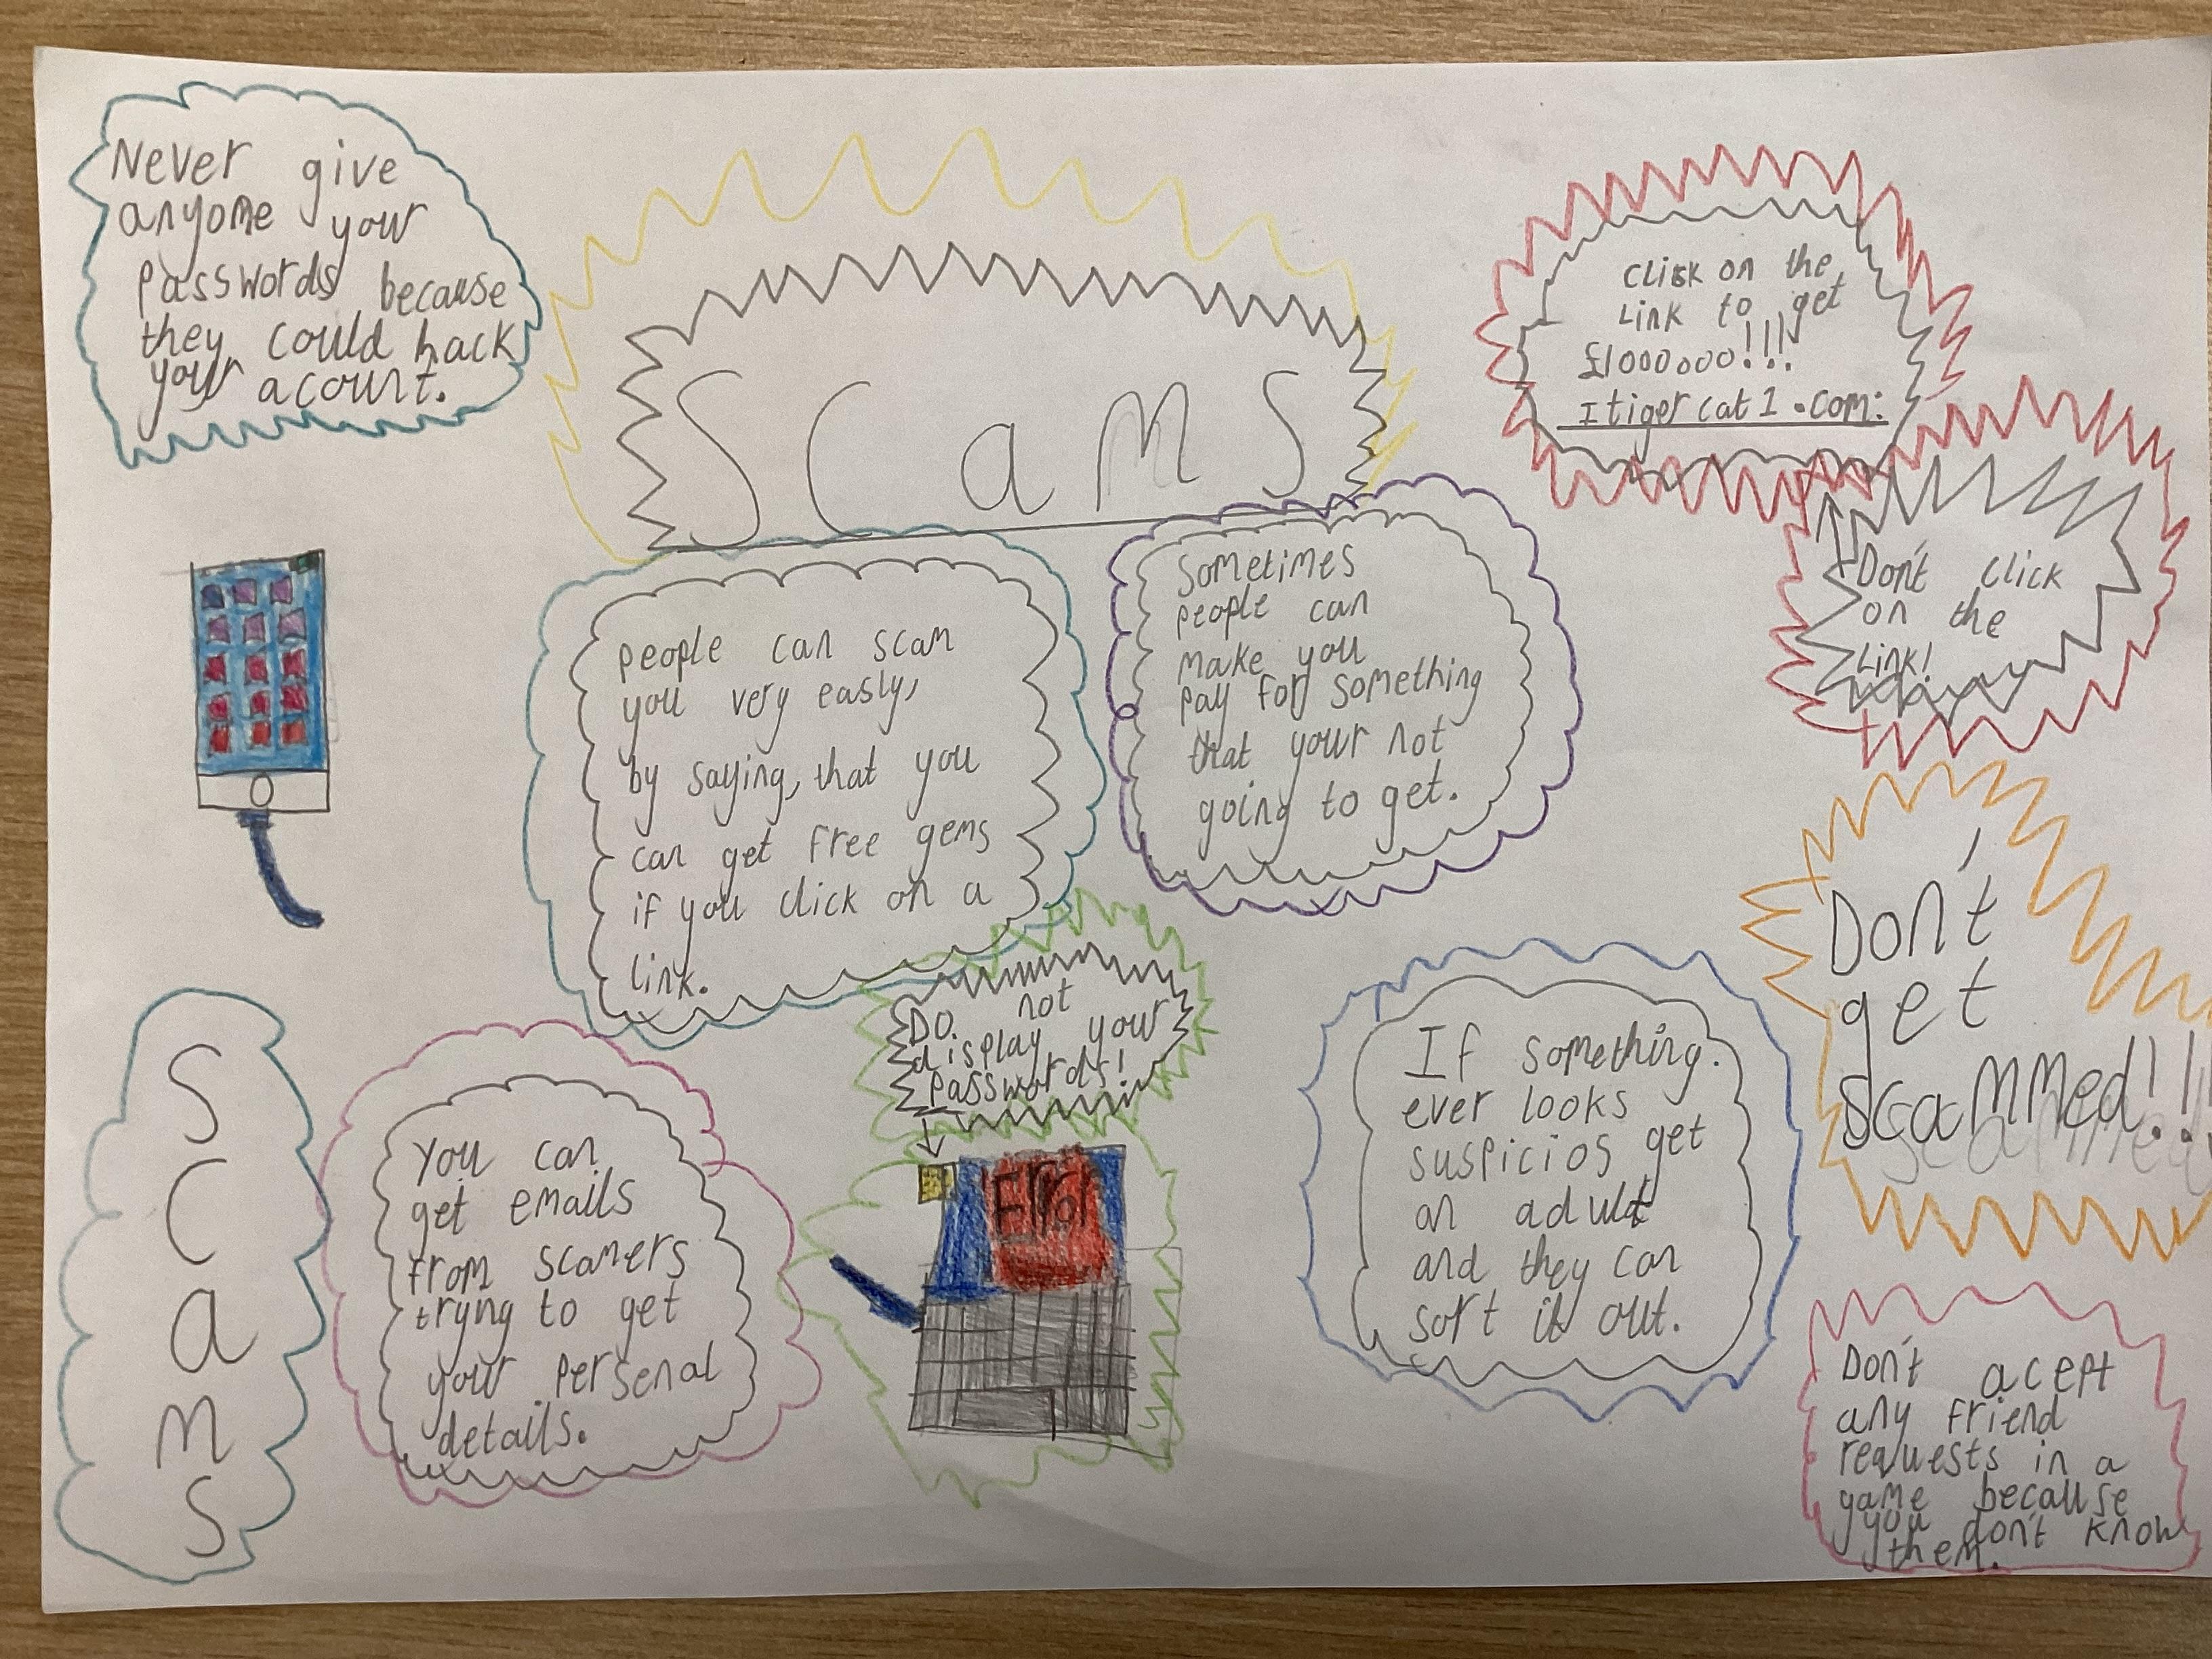 Never give
anyome your
passwords because
they could hack
your acount.
Scams
Click on the
Link to get
£1000000!!!
Itigercat1.com:
Don't click
on the
Link!
people can scam
you very easly,
by saying, that you
can get free gems
if you click on a
link.
Sometimes
people can
make you
pay for something
that your not
going to get.
Don't
get
scammed!!!
S
C
a
m
s
You can
get emails
from scamers
tryng to get
your personal
details.
Do. not
display your
passwords!
Error
If something.
ever looks
suspicios get
an adult
and they can
sort it out.
Don't acept
any friend
requests in a
game because
you don't know
them.